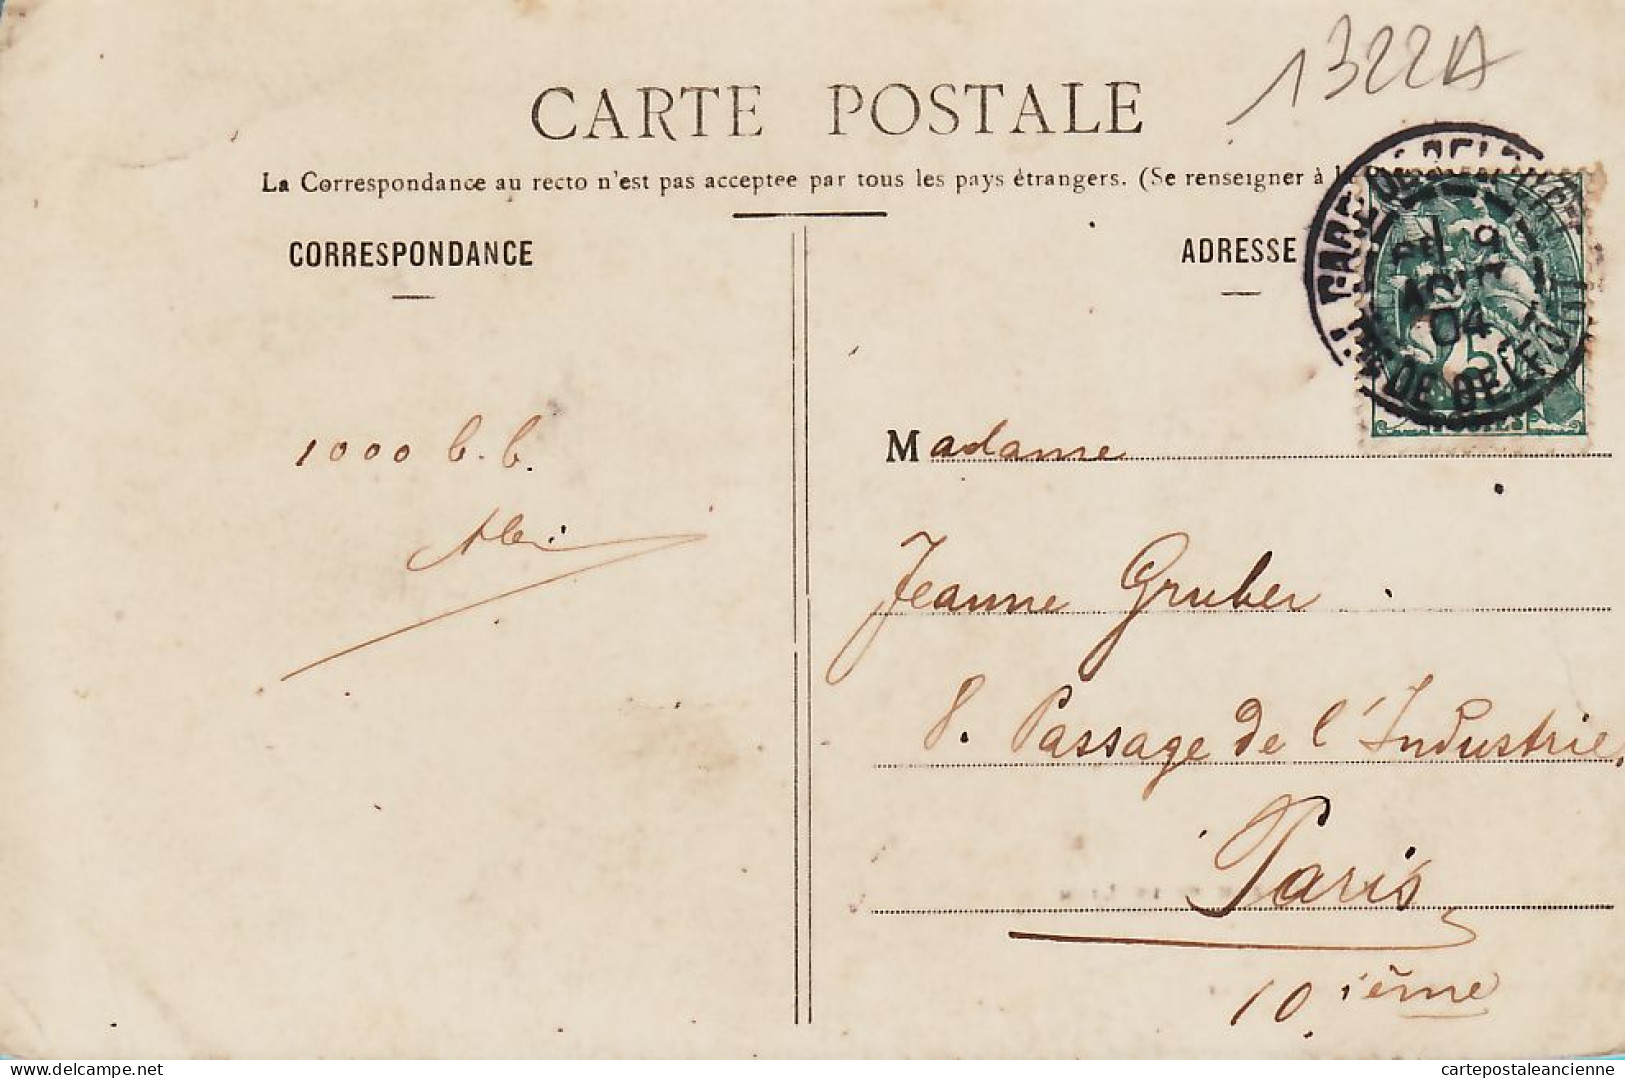 1322A
CARTE POSTALE
La Correspondance au recto n'est pas acceptee par tous les pays étrangers. (Se renseigner à l
CORRESPONDANCE
ADRESSE
GARE DE BELFORT
9
AOUT
04
DE BELFORT
5
1000 b. b.
Madame
Jeanne Gruber
8. Passage de l'Industrie,
Paris
10.ième
delcampe.net
cartepostaleancienne